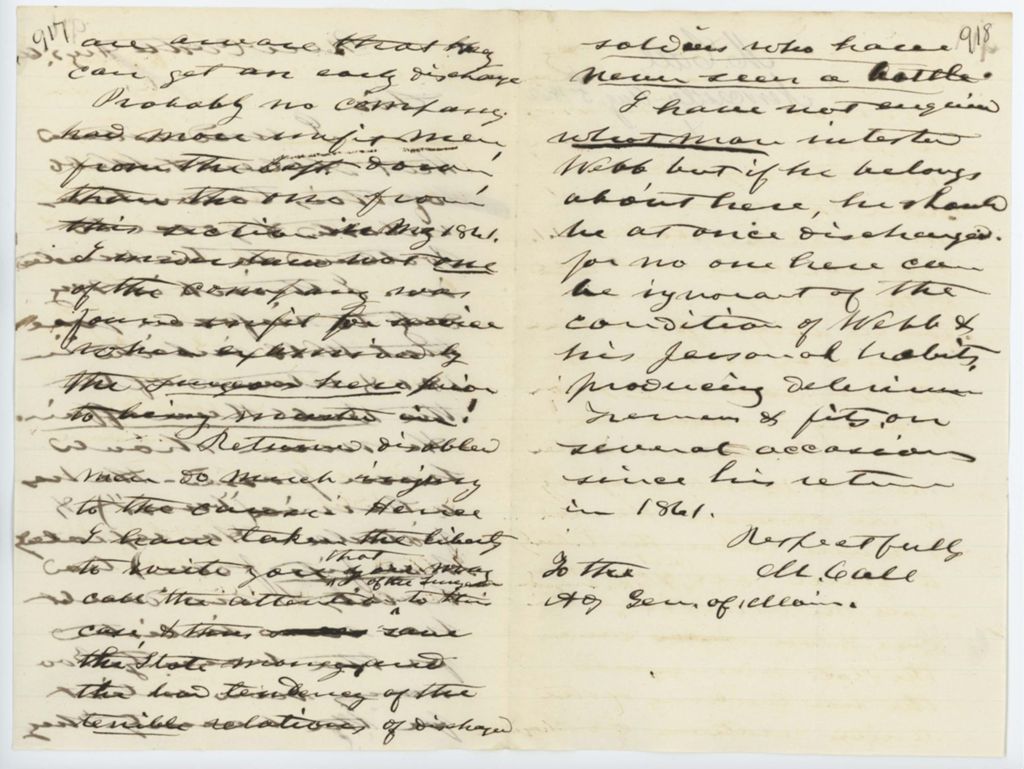 917
are aware that they
can get an early discharge
Probably no company
had more unfit men
from the Capt. down
than the one from
this section in My 1861.
I understand not one
of the company was
found unfit for service
when examined by
the surgeon here prior
to being mustered in!
Returned disabled
men do much injury
to the cause. Hence
I have taken the liberty
to write you that you may
call the attention of the Surgeon to this
case, & thus save
the State money, and
the bad tendency of the
terrible relations of discharged
918
soldiers who have
never seen a battle.
I have not enquired
what man
Webb but if he belongs
about here, he should
be at once discharged.
for no one here can
be ignorant of the
condition of Webb &
his personal habits,
producing delirium
tremens & fits, on
several occasions
since his return
in 1861.
Respectfully
M. Call
To the
Adj Gen. of Maine.